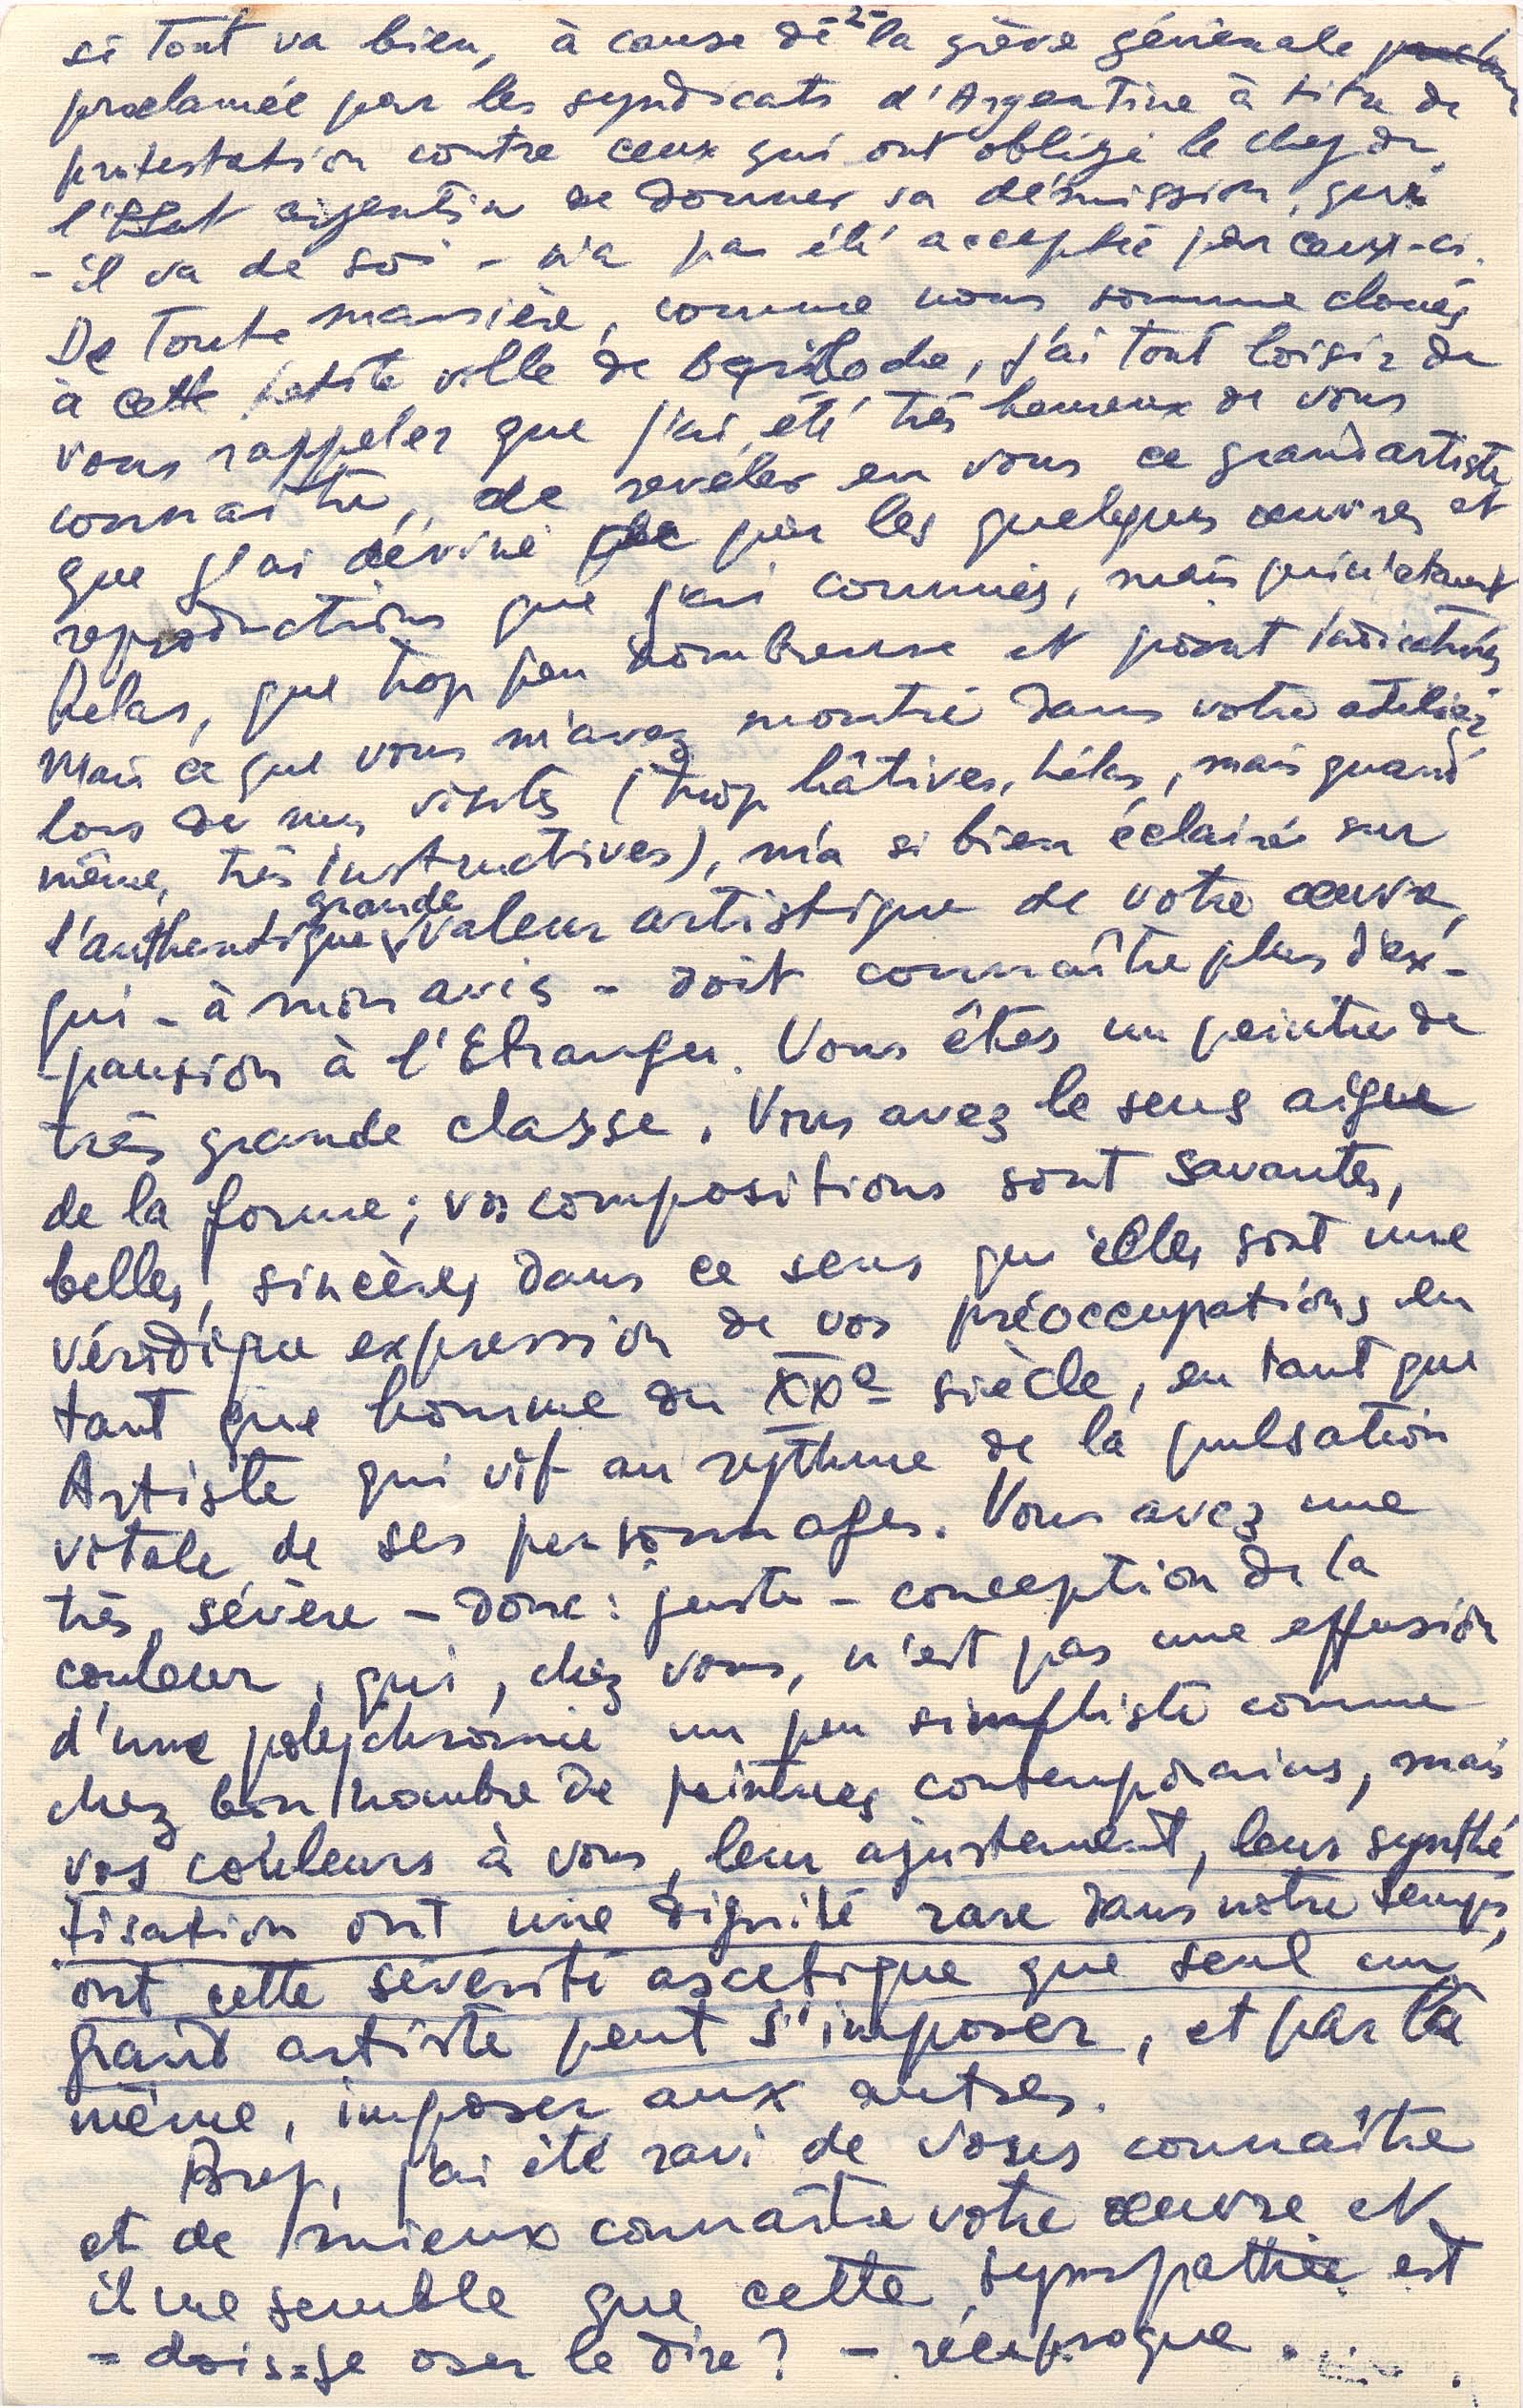 -2-
si tout va bien, à cause de la grève générale
proclamée par les syndicats d'Argentine à titre de
protestation contre ceux qui ont obligé le chef de
l'Etat argentin de donner sa démission, qui
- il va de soi - n'a pas été acceptée par ceux-ci.
De toute manière, comme nous somme cloués
à cette petite ville de Bariloche, j'ai tout loisir de
vous rappeler que j'ai été très heureux de vous
connaître, de revéler en vous ce grand artiste
que j'ai deviné par les quelques œuvres et
reproductions que j'ai connues, mais qui n'étaient
helas, que trop peu nombreuse et point indicatives
Mais ce que vous m'avez montré dans votre atelier,
lors de mes visites (trop hâtives, hélas, mais quand
même, très instructives), m'a si bien éclairé sur
l'authentique grande valeur artistique de votre œuvre,
qui - à mon avis - doit connaître plus d'ex-
-pansion à l'Etranger. Vous êtes un peintre de
très grande classe. Vous avez le sens aigue
de la forme; vos compositions sont savantes,
belles, sincères, dans ce sens qu'elles sont une
véridique expression de vos préoccupations en
tant que homme du XXe siècle, en tant que
Artiste qui vit au rythme de la pulsation
vitale de ses personnages. Vous avez une
très sévère - donc: juste - conception de la
couleur, qui, chez vous, n'est pas une effusion
d'une polychromie un peu simpliste comme
chez bon nombre de peintres contemporains, mais
vos couleurs à vous, leur ajustement, leur synthé
tisation ont une dignité rare dans notre temps,
ont cette séverité ascetique que seul un
grand artiste peut s'imposer, et par là
même, imposer aux autres.
Bref, j'ai été ravi de vous connaître
et de mieux connaître votre œuvre et
il me semble que cette sympathie est
- dois-je oser le dire? - réciproque.